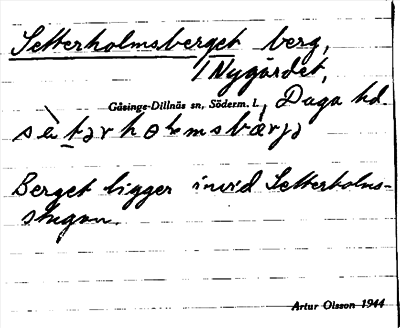 Setterholmsberget berg,
/ Nygärdet,
Gåsinge-Dillnäs sn, Söderm. l., Daga hd.
sètərhoḷmsbærjə
Berget ligger invid Setterholms-
stugan.
Artur Olsson 1944